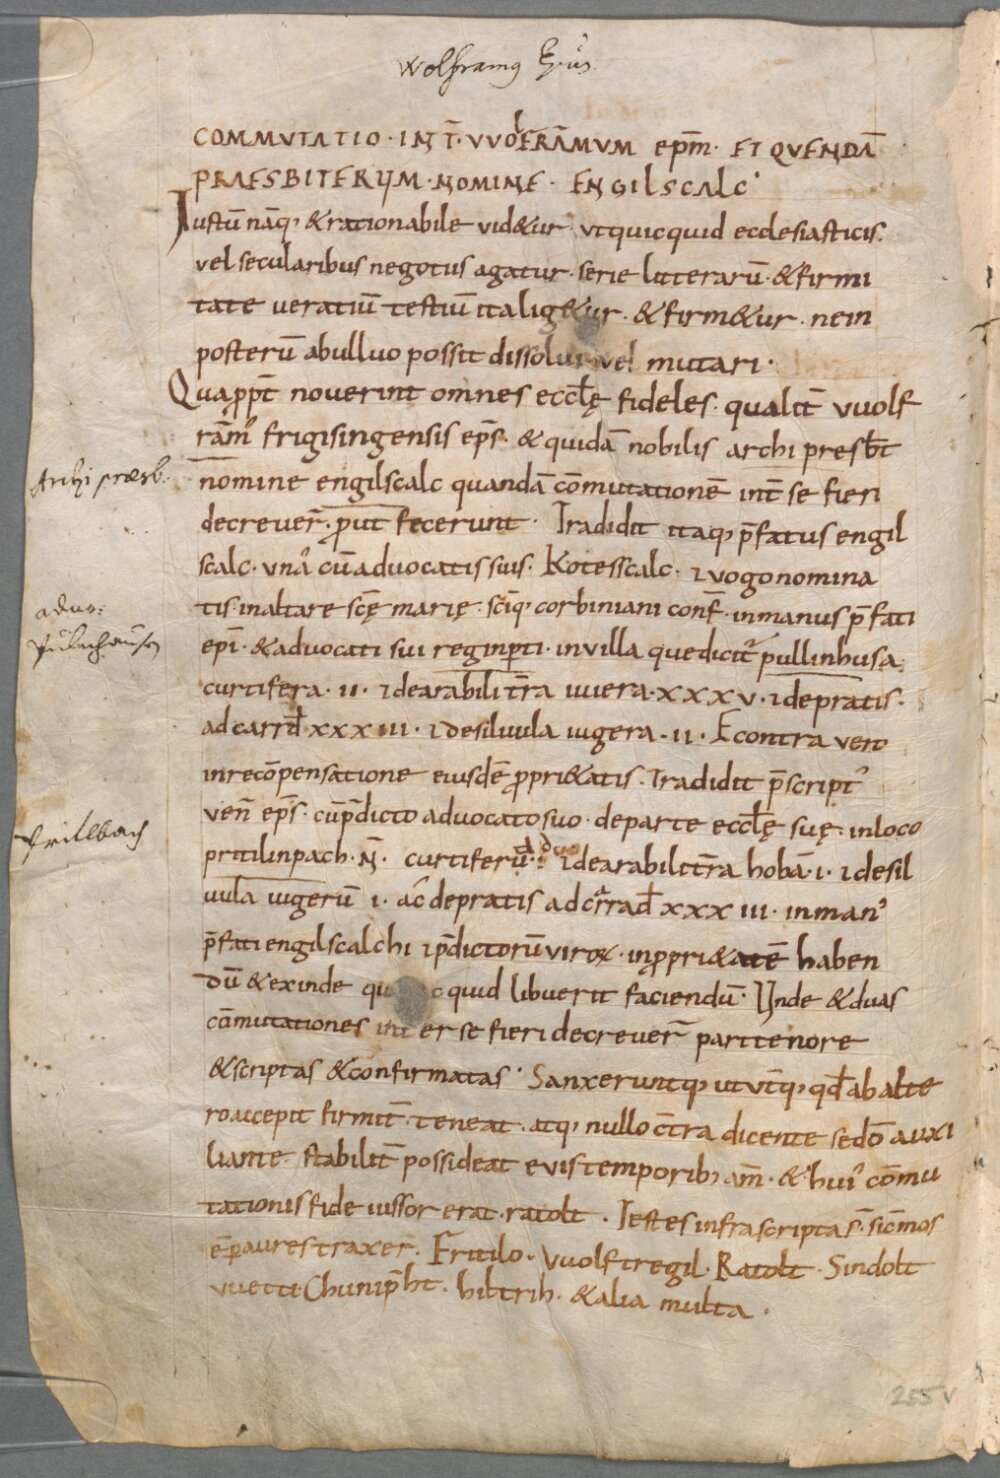 Wolframus Epus
COMMVTATIO · INT̄ · VVOLFRĀMVM epm̄ · ET QVENDĀ
PRAESBITERUM · NOMINE · ENGILSCALC ·
Iustū nāq, & rationabile vid&ur · vt quicquid ecclesiasticis ·
vel secularibus negotiis agatur · serie litterarū · & firmi
tate veratiū testiū ita lig&ur · & firm&ur · ne in
posterū ab ulluo possit dissolui vel mutari ·
Quaprpt̄ noverint omnes eccłę fideles · qualit̄ vvolf
rām' frigisingensis ep̄s · & quidā nobilis archi presbt̄
nomine engilscalc quandā cōmutationē int̄ se fieri
decrever̄ · prut fecerunt · Tradidit itaq, p̄fatus engil
scalc · vna cū advocatis suis · Kotesscalc · ⁊ vogo nomina
tis · in altare scę̄ marię · sciq̄, corbiniani conf̄ · in manus p̄fati
epi · & advocati sui reginperti · in villa que dicit̄ pullinhusa
curtifera · II · ⁊ de arabili tr̄a iuvera · XXXV · ⁊ de pratis ·
ad carrd̄ · XXXIII · ⁊ de siluula iugera · II · Econtra vero
in recōpensatione eiusdē propri&atis · Tradidit p̄script'
ven̄ ep̄s · cū p̄dicto advocato suo · de parte eccłę suę · in loco
pritilinpach · N̄ · curtiferū · duo ⁊ de arabili tr̄a hobā · I · ⁊ de sil
uula iugerū I · ac̄ de pratis ad carrad̄ XXXIII · in man'
p̄fati engilscalchi ⁊ p̄dictorū virorꝝ · in propri&atē haben
dū & exinde qu c quid libuerit faciendū · Unde & duas
cōmutationes inter se fieri decrever̄ pari tenore
& scriptas & confirmatas · Sanxeruntq, ut vtq̄, qd̄ ab alte
ro accepit firmit̄ teneat · atq, nullo ctr̄a dicente sed dō auxi
liante · stabilit̄ possideat evis temporib, am̄ · & hui' cōmu
tationis fide iussor erat · ratolt · Testes infra scripta s̄ · sic mos
ē p aures traxer̄ · Fritilo · Vuolftregil · Ratolt · Sindolt
vvetti · Chunipht̄ · hiltrih · & alia multa ·
Archi præsb.
advo:
Pulnhausen
Prillbach
255v